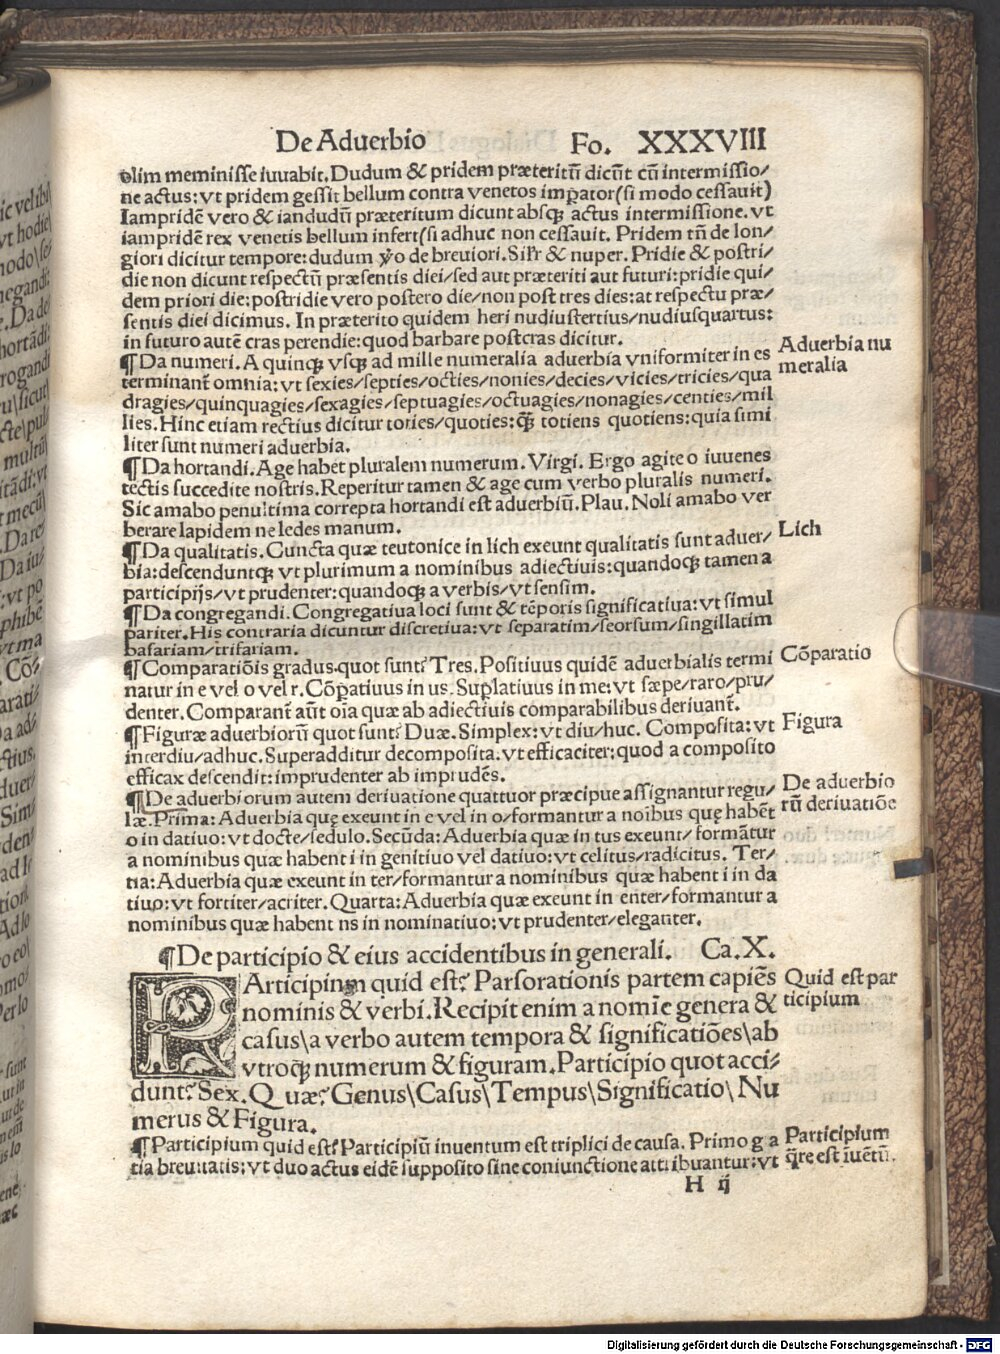 De Aduerbio Fo. XXXVIII
olim meminisse iuuabit. Dudum & pridem præteritū dicūt cū intermissio⸗
ne actus: vt pridem gessit bellum contra venetos imꝑator (si modo cessauit)
Iampridē vero & iandudū præteritum dicunt absqꝫ actus intermissione. vt
iampridē rex venetis bellum infert (si adhuc non cessauit. Pridem tn̄ de lon⸗
giori dicitur tempore: dudum v̊o de breuiori. Sil̄r & nuper. Pridie & postri⸗
die non dicunt respectū præsentis diei/sed aut præteriti aut futuri: pridie qui⸗
dem priori die: postridie vero postero die/non post tres dies: at respectu præ⸗
sentis diei dicimus. In præterito quidem heri nudiustertius/nudiusquartus:
in futuro autē cras perendie: quod barbare postcras dicitur.
¶Da numeri. A quinqꝫ vsqꝫ ad mille numeralia aduerbia vniformiter in es
terminant̄ omnia: vt sexies/septies/octies/nonies/decies/vicies/tricies/qua
dragies/quinquagies/sexagies/septuagies/octuagies/nonagies/centies/mil
lies. Hinc etiam rectius dicitur toties/quoties: qꝫ̄ totiens quotiens: quia simi
liter sunt numeri aduerbia.
¶Da hortandi. Age habet pluralem numerum. Virgi. Ergo agite o iuuenes
tectis succedite nostris. Reperitur tamen & age cum verbo pluralis numeri.
Sic amabo penultima correpta hortandi est aduerbiū. Plau. Noli amabo ver
berare lapidem ne ledes manum.
¶Da qualitatis. Cuncta quæ teutonice in lich exeunt qualitatis sunt aduer⸗
bia: descenduntqꝫ vt plurimum a nominibus adiectiuis: quandoqꝫ tamen a
participijs/vt prudenter: quandoqꝫ a verbis/vt sensim.
¶Da congregandi. Congregatiua loci sunt & tēporis significatiua: vt simul
pariter. His contraria dicuntur discretiua: vt separatim/seorsum/singillatim
bafariam/trifariam.
¶Comparatiōis gradus quot sunt? Tres. Positiuus quidē aduerbialis termi
natur in e vel o vel r. Cōꝑatiuus in us. Suꝑlatiuus in me: vt sæpe/raro/pru⸗
denter. Comparant̄ aūt oīa quæ ab adiectiuis comparabilibus deriuant̄.
¶Figuræ aduerbiorū quot sunt? Duæ. Simplex: vt diu/huc. Composita: vt
interdiu/adhuc. Superadditur decomposita. vt efficaciter: quod a composito
efficax descendit: imprudenter ab imprudēs.
¶De aduerbiorum autem deriuatione quattuor præcipue assignantur regu⸗
læ. Prima: Aduerbia quę exeunt in e vel in o/formantur a noībus quę habēt
o in datiuo: vt docte/sedulo. Secūda: Aduerbia quæ in tus exeunt/formātur
a nominibus quæ habent i in genitiuo vel datiuo: vt celitus/radicitus. Ter⸗
tia: Aduerbia quæ exeunt in ter/formantur a nominibus quæ habent i in da
tiuo: vt fortiter/acriter. Quarta: Aduerbia quæ exeunt in enter/formantur a
nominibus quæ habent ns in nominatiuo: vt prudenter/eleganter.
Aduerbia nu
meralia
Lich
Cōparatio
Figura
De aduerbio
rū deriuatiōe
¶De participio & eius accidentibus in generali. Ca. X.
PArticipium quid est? Pars orationis partem capiēs
nominis & verbi. Recipit enim a nomīe genera &
casus\a verbo autem tempora & significatiōes\ab
vtroqꝫ numerum & figuram. Participio quot acci⸗
dunt? Sex. Quæ? Genus\Casus\Tempus\Significatio\Nu
merus & Figura.
¶Participium quid est? Participiū inuentum est triplici de causa. Primo g̅a
tia breuitatis: vt duo actus eidē supposito sine coniunctione attribuantur: vt
H ij
Quid est par
ticipium
Participium
q̄re est īuētū.
Digitalisierung gefördert durch die Deutsche Forschungsgemeinschaft - DFG